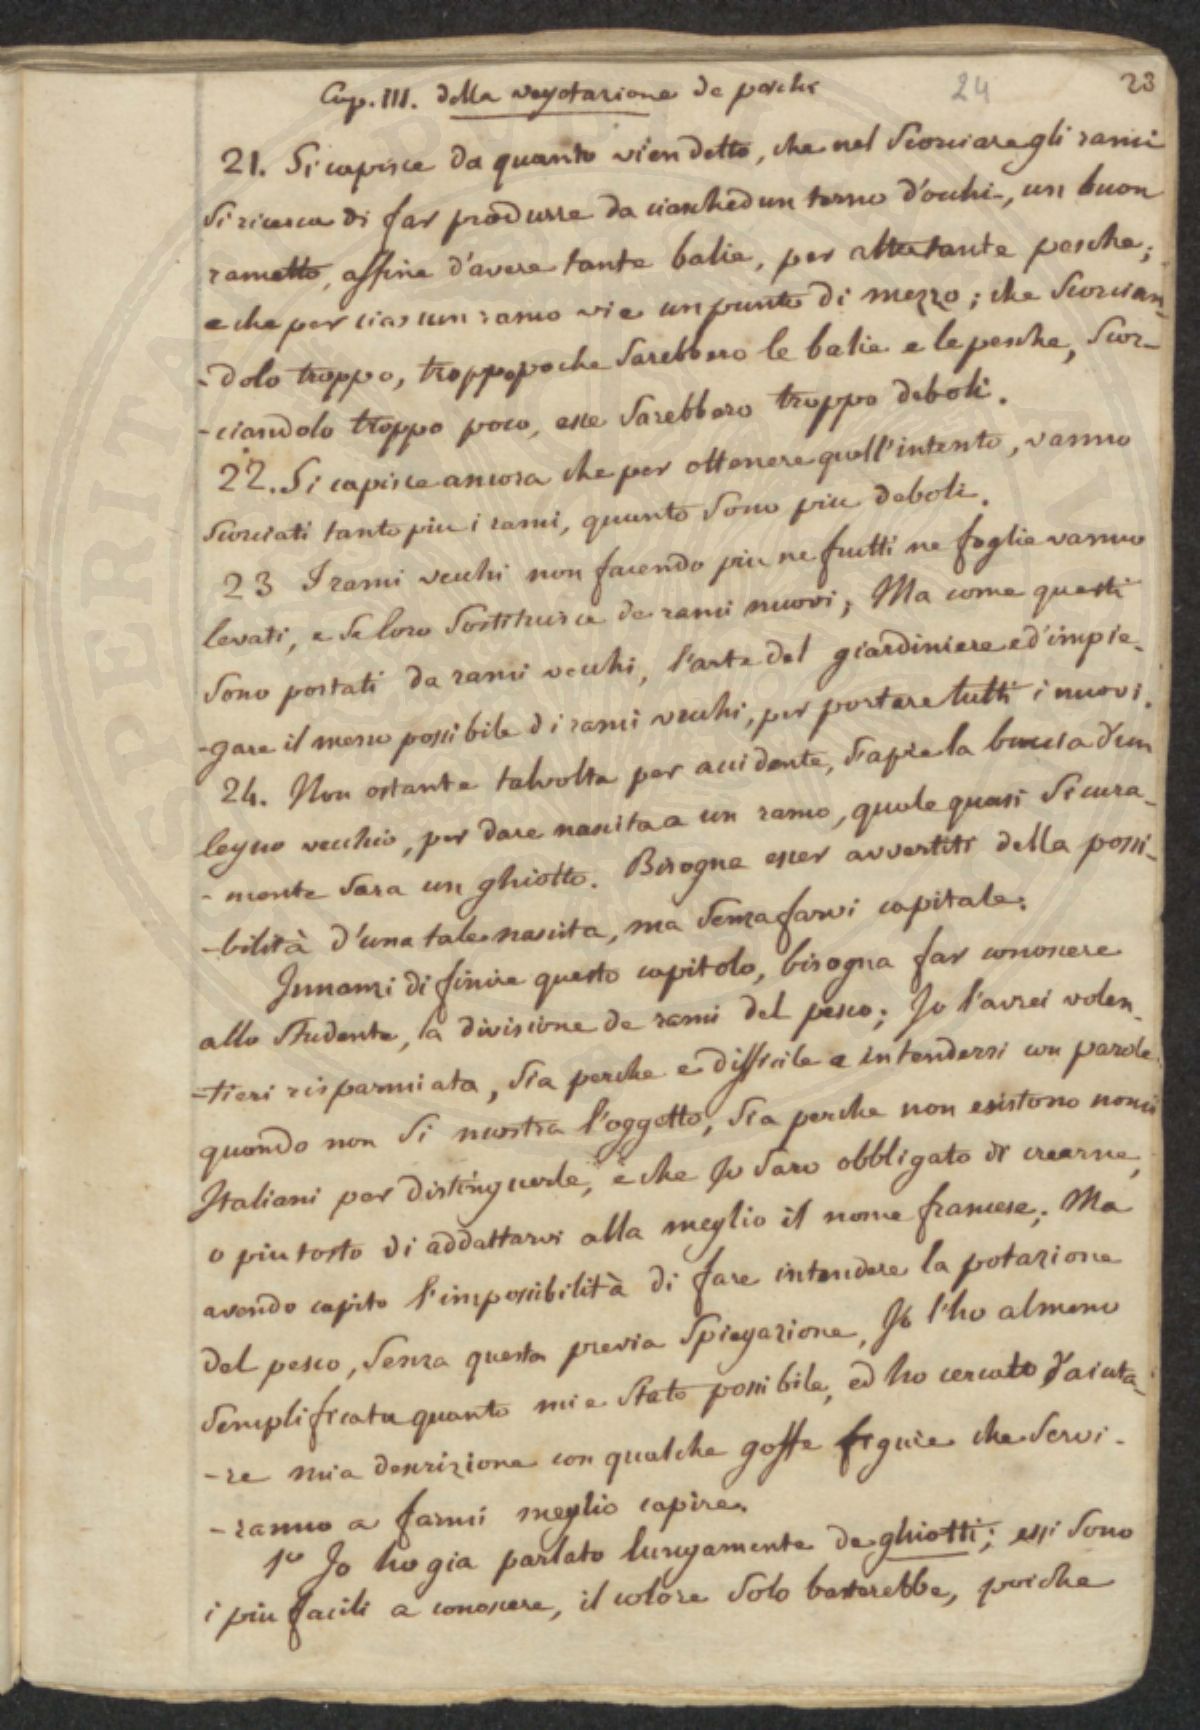 Cap. III. della vegetazione de peschi 24 23
21. Si capisce da quanto vien detto, che nel Scorciare gli rami
Si ricerca di far produrre da ciaschedun torno d'occhi, un buon
rametto, affine d'avere tante balie, per altretante pesche;
e che per ciascun ramo vi e un punto di mezzo; che Scorcian-
-dolo troppo, troppo poche Sarebbero le balie e le pesche, Scor-
-ciandolo troppo poco, esse Sarebbero troppo deboli.
22. Si capisce ancora che per ottenere quell'intento, vanno
Scorciati tanto piu i rami, quanto Sono piu deboli.
23 I rami vecchi non facendo piu ne frutti ne foglie vanno
levati, e Se loro Sostituisce de rami nuovi; Ma come questi
Sono portati da rami vecchi, l'arte del giardiniere ed'impie-
-gare il meno possibile di rami vecchi, per portare tutti i nuovi.
24. Non ostante talvolta per accidente, S'apre la buccia d'un
legno vecchio, per dare nascita a un ramo, quale quasi Sicura-
-mente Sara un ghiotto. Bisogna esser avvertiti della possi-
-bilità d'una tale nascita, ma Senza farvi capitale.
Innanzi di finire questo capitolo, bisogna far conoscere
allo Studente, la divisione de rami del pesco; Io l'avrei volen-
-tieri risparmiata, Sia perche e difficile a intendersi con parole
quando non Si mostra l'oggetto, Sia perche non esistono nomi
Italiani per distinguerle, e che Io Saro obbligato di crearne,
o piu tosto di addattarvi alla meglio il nome francese; Ma
avendo capito l'impossibilità di fare intendere la potazione
del pesco, Senza questa previa Spiegazione, Io l'ho almeno
Semplificata quanto mi e Stato possibile, ed ho cercato d'aiuta-
-re mia descrizione con qualche goffe figure che Servi-
-ranno a farmi meglio capire.
1º Io ho gia parlato lungamente de ghiotti; essi Sono
i piu facili a conoscere, il colore Solo basterebbe, poiche